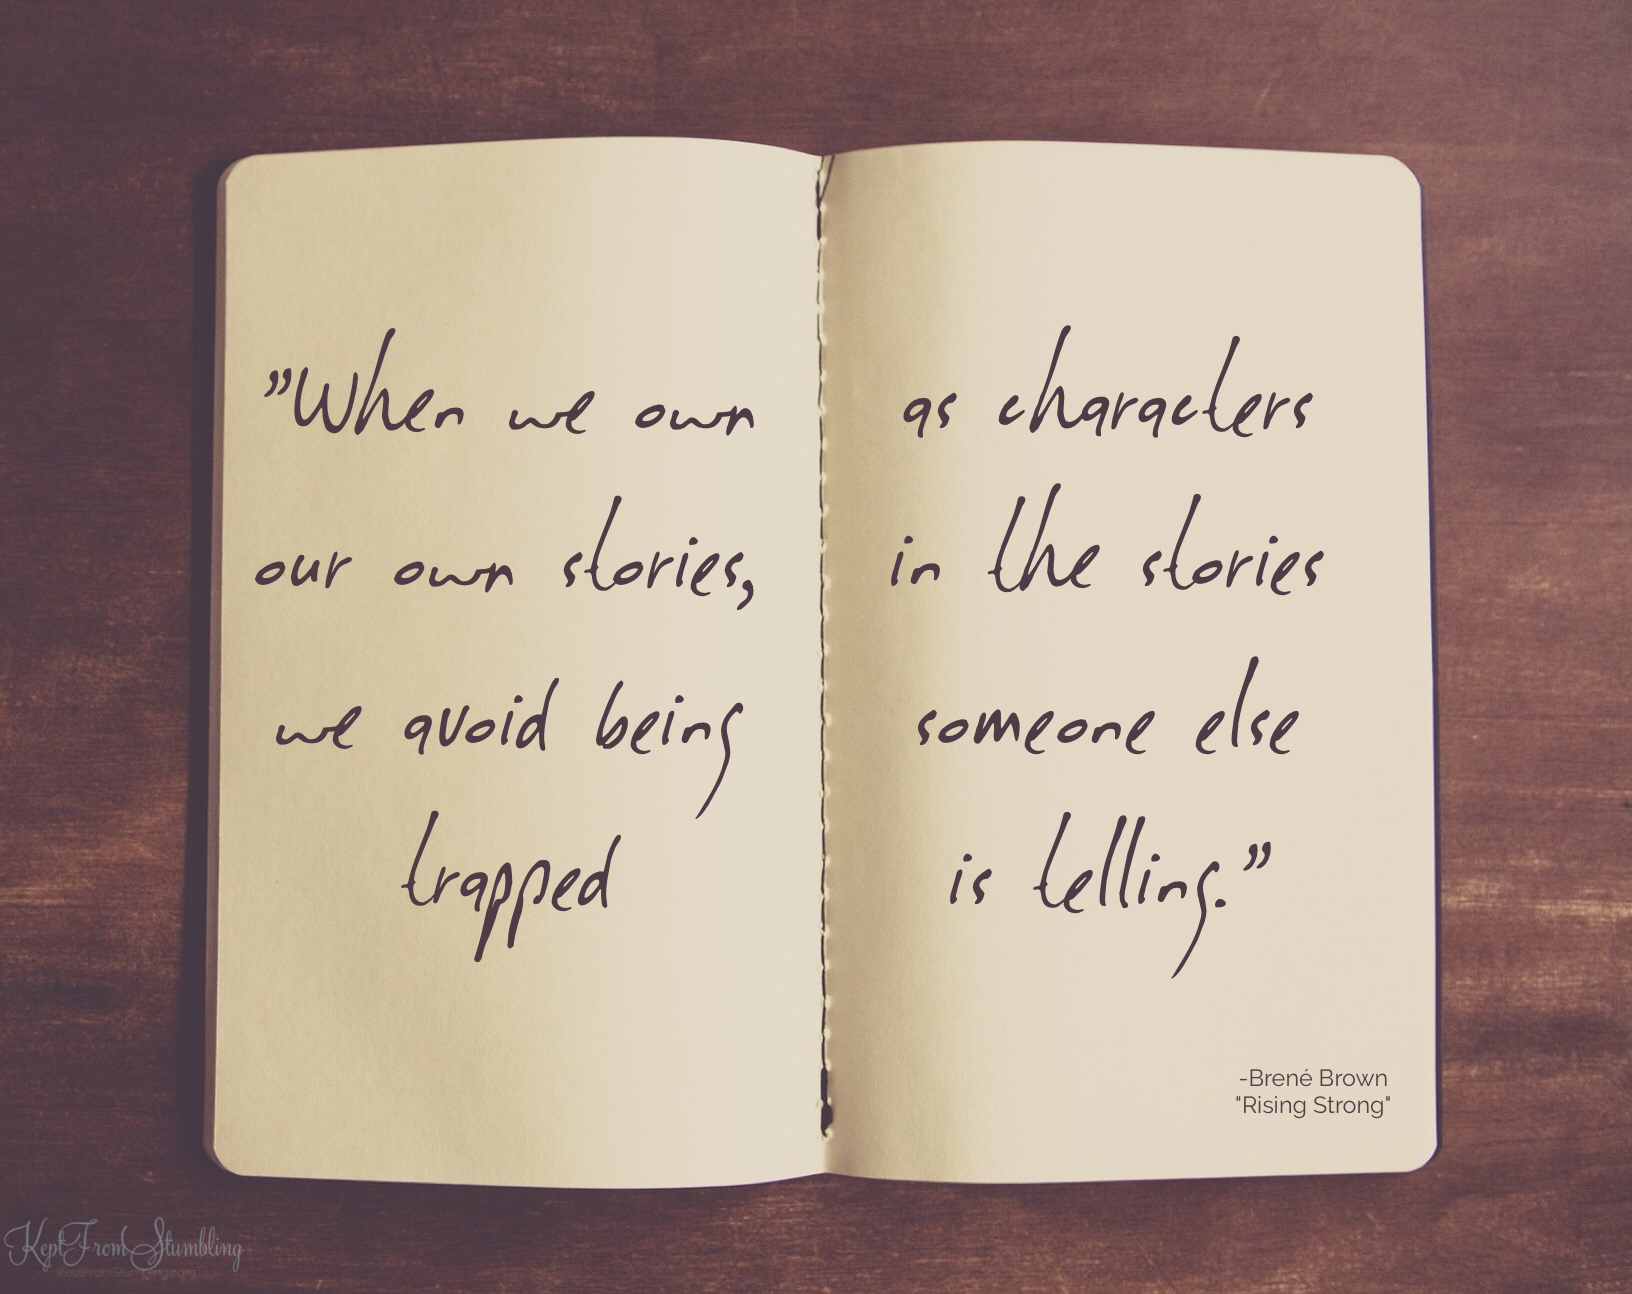 ”When we own
our own stories,
we avoid being
trapped
as characters
in the stories
someone else
is telling.”
-Brené Brown
"Rising Strong"
KeptFromStumbling
KeptFromStumbling.com